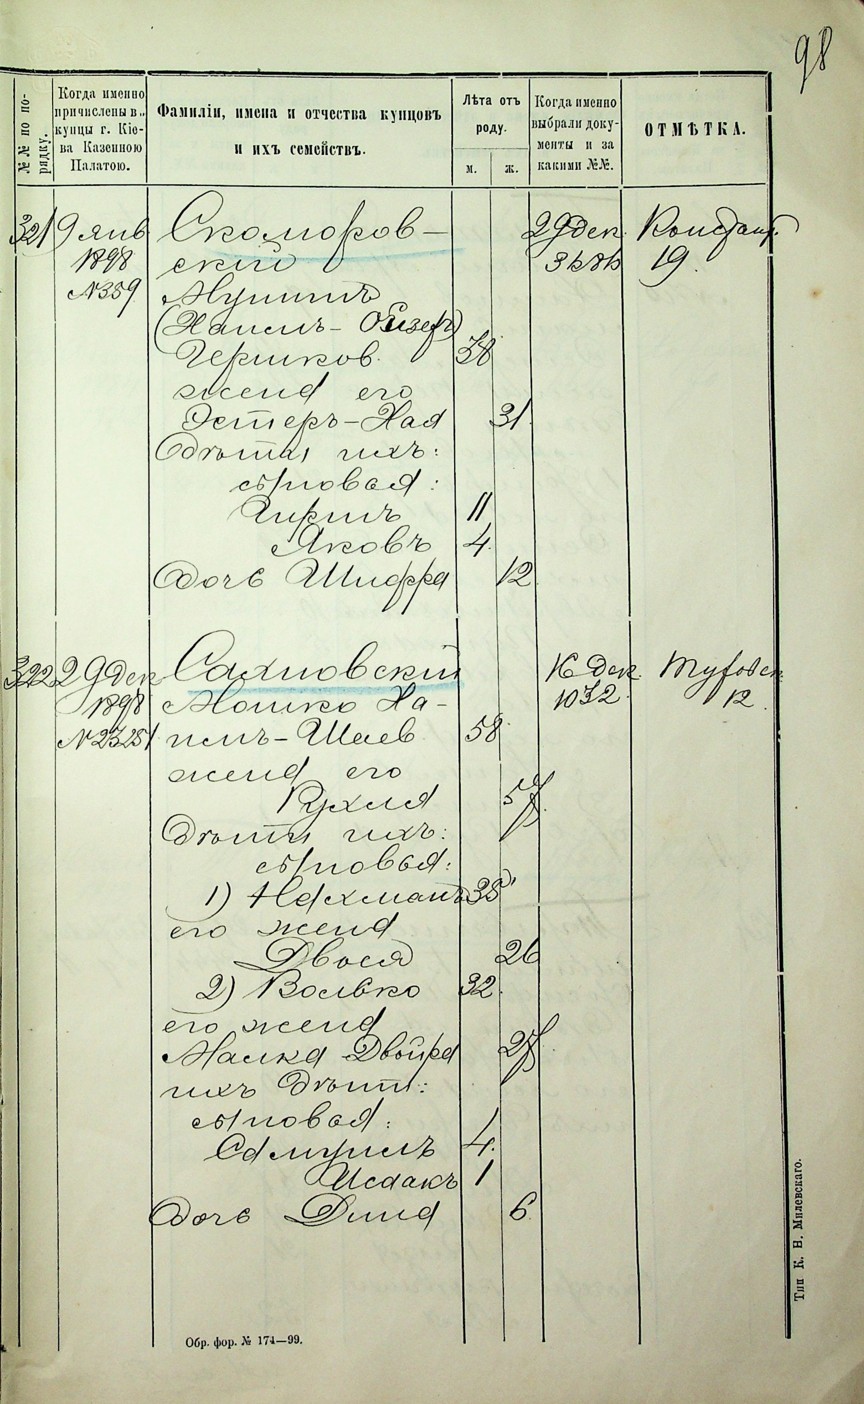 98
№№ по по-
рядку.
Когда именно
причислены в..
купцы г. Кіе-
ва Казенною
Палатою.
Фамиліи, имена и отчества купцовъ
и ихъ семействъ.
Лѣта отъ
роду.
м. ж.
Когда именно
выбрали доку-
менты и за
какими №№.
ОТМѢТКА.
321 9 янв Скоморов- 29 дек
1898 скій 19
№359
Гершков 38
жена его
Эстеръ-Хая 31
Дѣти ихъ:
сыновья:
11
Яковъ 4
Дочь Шифра 12
322 29 дек Сахновскій 16 дек
1898 Мошко Ха- 1032 12
№23251 имъ-Шаев 58
жена его
Рухля 57
Дѣти ихъ:
сыновья:
1) Нахманъ 35
его жена
Двося 26
2) Волько 32
его жена
Малка Двойра 27
ихъ дѣти:
сыновья:
Самуилъ 4
Исаакъ 1
Дочь Дина 6
Обр. фор. № 174—99.
Тип К. Н. Милевскаго.